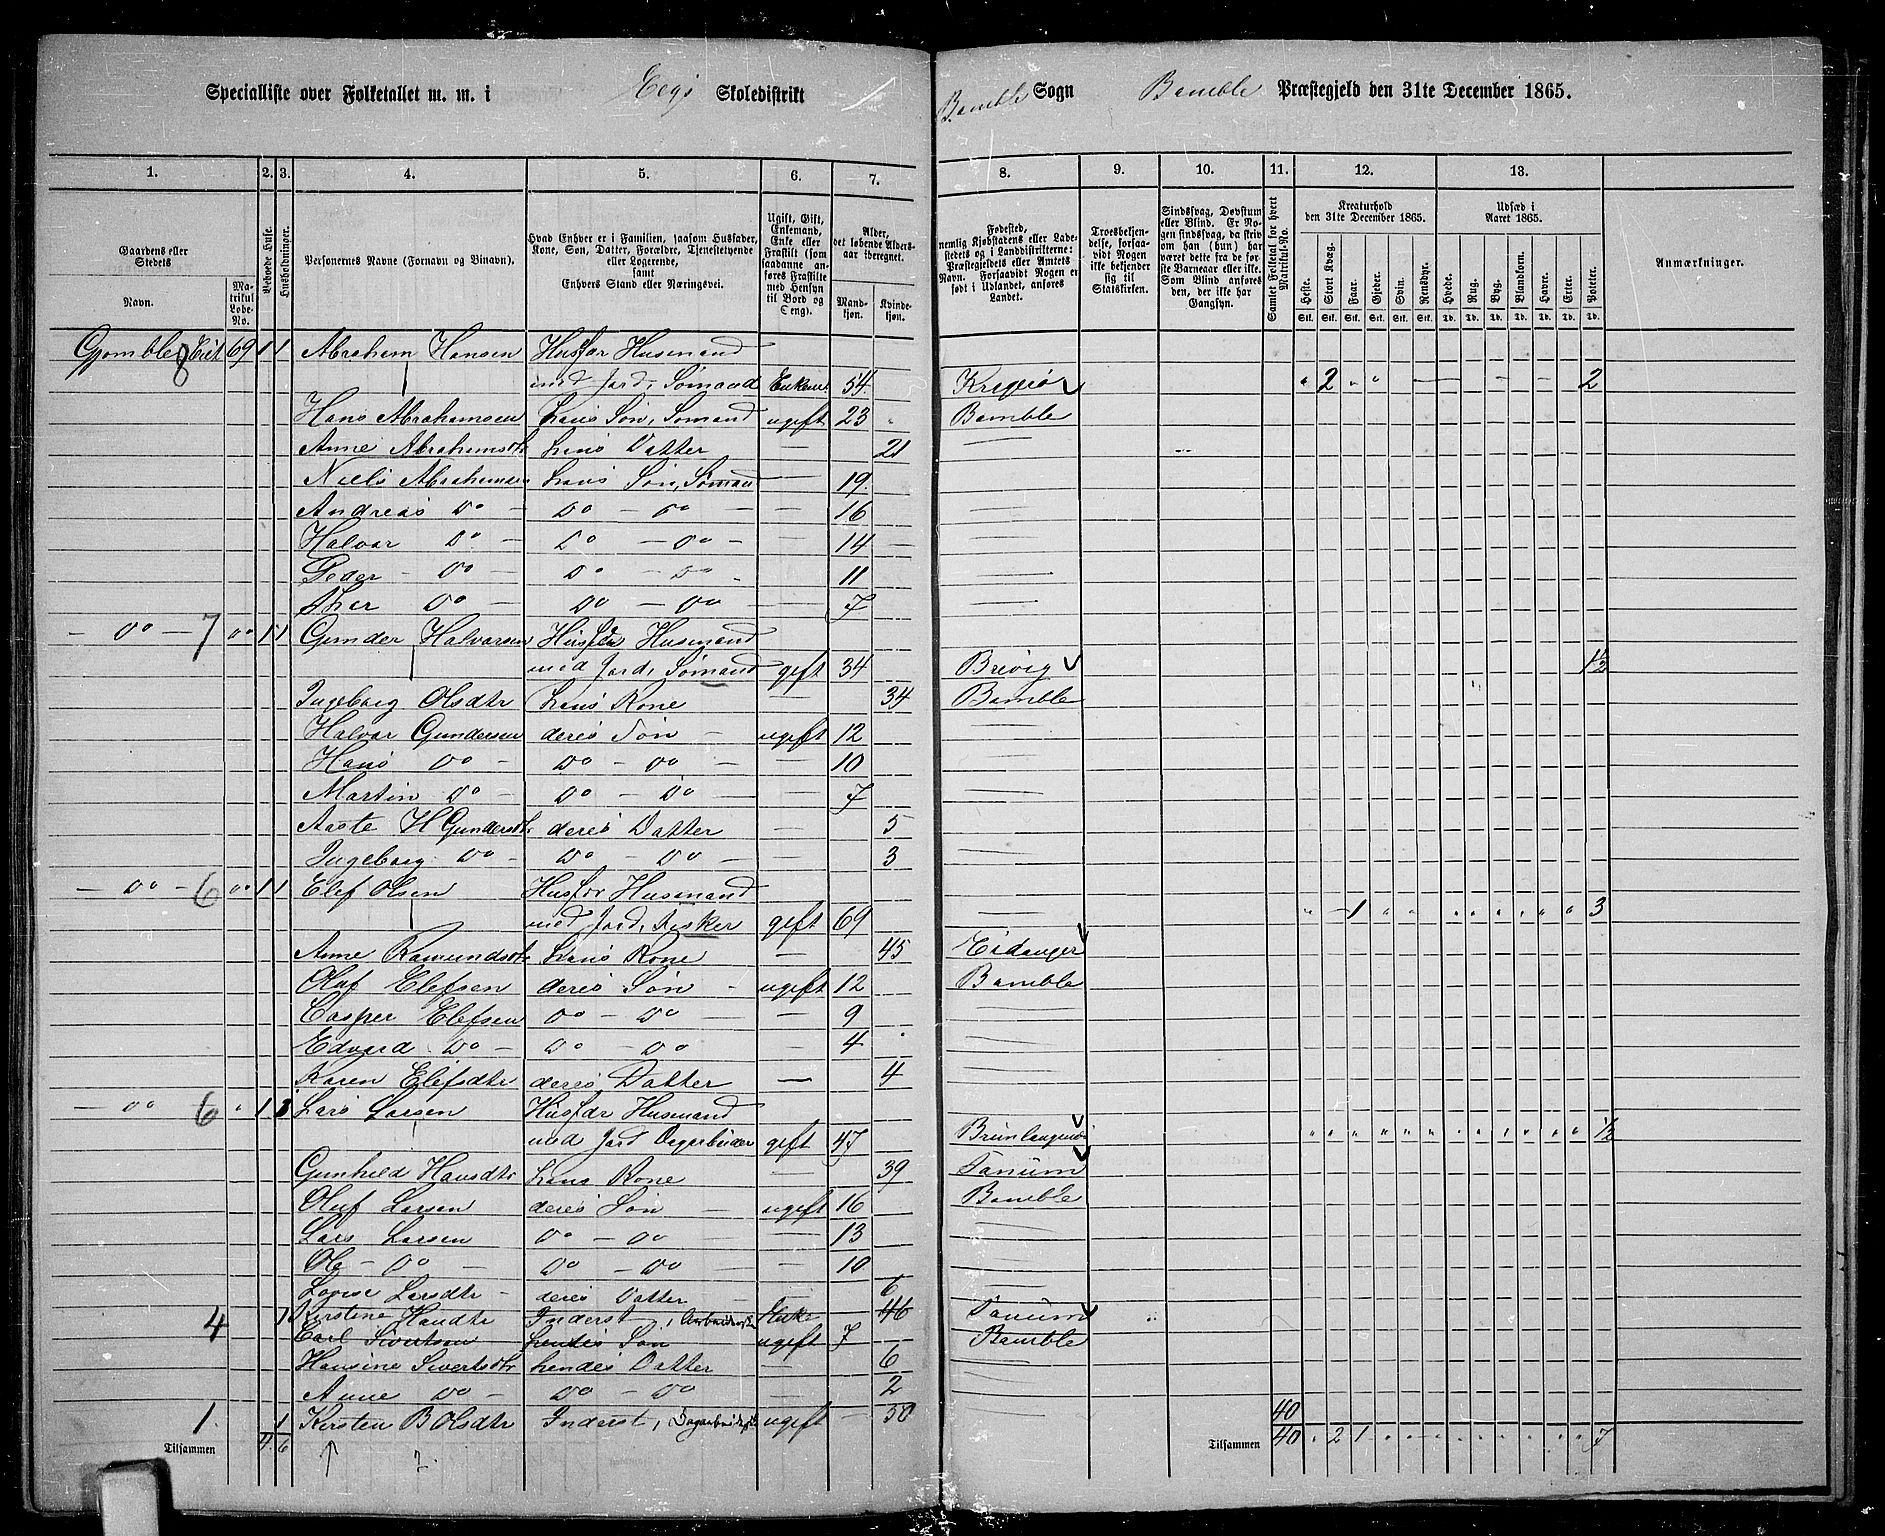 Specialliste over Folketallet m. m. i Eegs Skoledistrikt Bamble Sogn Bamble Præstegjeld den 31te December 1865.
1. 2. 3. 4. 5. 6. 7. 8. 9. 10. 11. 12. 13.
Gaardens eller Stedets
Navn.
Matrikul Løbe-No.
Beboede Huse.
Husholdninger.
Personernes Navne (Fornavn og Binavn).
Hvad Enhver er i Familien, saasom Husfader, Kone, Søn, Datter, Forældre, Tjenestetyende eller Logerende, samt Enhvers Stand eller Næringsvei.
Ugift, Gift, Enkemand, Enke eller Fraskilt (som saadanne anføres Fraskilte med Hensyn til Bord og Seng).
Alder, det løbende Alders-aar iberegnet.
Mandkjøn. Kvindekjøn.
Fødested, nemlig Kjøbstadens eller Ladestedets og i Landdistrikterne: Præstegjeldets eller Amtets Navn. Forsaavidt Nogen er født i Udlandet, anføres Landet.
Troesbekjendelse, forsaavidt Nogen ikke bekjender sig til Statskirken.
Sindssvag, Døvstum eller Blind. Er Nogen sindssvag, da skriv om han (hun) har været dette fra de første Barneaar eller ikke. Som Blind anføres den, der ikke har Gangsyn.
Samlet Folketal for hvert Matrikul-No.
Kreaturhold den 31te December 1865.
Heste. Stort Kvæg. Faar. Gjeder. Svin. Rensdyr.
Stk. Stk. Stk. Stk. Stk. Stk.
Udsæd i Aaret 1865.
Hvede. Rug. Byg. Blandkorn. Havre. Erter. Poteter.
Td. Td. Td. Td. Td. Td. Td.
Anmærkninger.
Gjømble Eiet 8 69 1 1 Abraham Hansen Husfar Husmand
med Jord, Sømand Enkem 54 Kragerø " 2 " " — — — 2
Hans Abrahamsen hans Søn, Sømand ugift 23 Bamble
Anne Abrahamsdtr hans Datter 21 —
Niels Abrahamsen hans Søn, Sømand — 19 —
Andreas Do — Do — Do — 16 —
Halvor Do — Do — Do — 14 —
Peder — Do — Do — Do 11 —
Ther Do — Do — Do — 7 —
— Do — 7 Do 1 1 Gunder Halvorsen Husfar Husmand
med Jord, Sømand gift 34 Brevig 1½
Ingeborg Olsdtr hans Kone 34 Bamble
Halvor Gundersen deres Søn — ugift 12 —
Hans Do — Do — Do — 10 —
Martin Do — Do — Do — 7 —
Aaste H Gundersdtr deres Datter — 5 —
Ingeborg Do — Do — Do — 3 —
— Do — 6 Do 1 1 Elef Olsen Husfar Husmand
med Jord, Fisker gift 69 — " — 1 " " " " " " " " 3
Anne Ramundsdtr hans Kone — 45 Eidanger
Oluf Elefsen deres Søn — ugift 12 Bamble
Casper Elefsen Do — Do — 9 —
Edvard Do — Do — Do — 4 —
Karen Elefsdtr deres Datter — 4 —
— Do — 6 " 1 1 Lars Larsen Husfar Husmand
med Jord gift 47 Brunlaugnæs " " " " " " " " " " " " ½
Gunhild Hansdtr hans Kone — 39 Tanum
Oluf Larsen deres Søn — ugift 16 Bamble
Lars Larsen Do — Do — 13 —
Ole — Do — Do — Do — 10 —
Lovise Larsdtr deres Datter — 6 —
4 1 Kirstine Handtr Inderst, Enke 46 Tanum
Carl Sivertsen hendes Søn ugift 7 Bamble
Hansine Sivertsdtr hendes Datter — 6 —
Anne Do — Do — Do — 2 —
1. 1 Kirsten B Olsdtr Inderst, ugift — 50 — 40
Tilsammen 4 6 Tilsammen 40 " 2 1 " " " " " " " " " 7
?